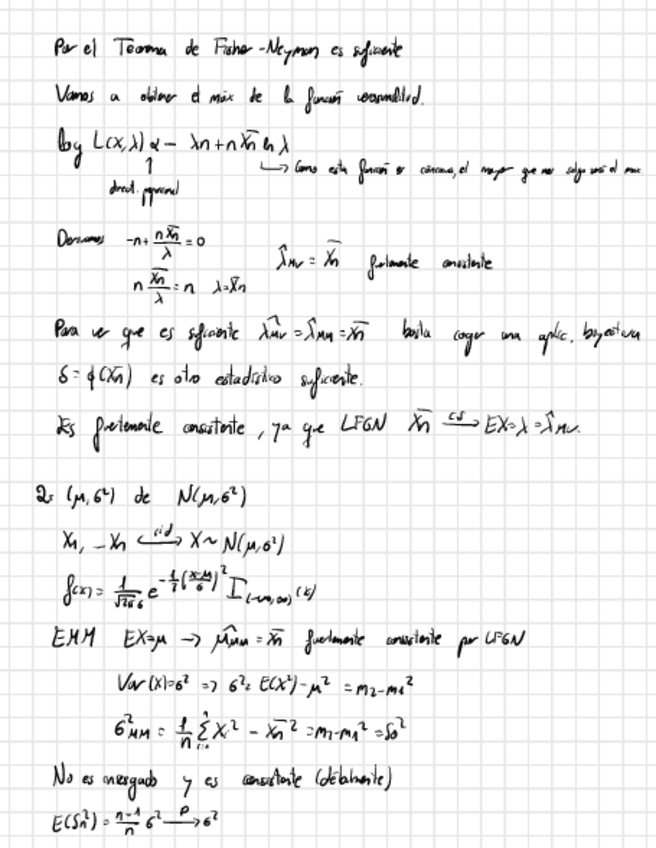 Por el Teorema de Fisher-Neyman es suficiente
Vamos a obtener el máx de la función verosimilitud.
log L(x,λ) α - λn + n X̄n ln λ
↑
direct. proporcional
↳ Como esta función es cóncava, el mayor que nos salga será el max
Derivamos -n + n X̄n/λ = 0
n X̄n/λ = n λ=X̄n
λ̂MV = X̄n fuertemente consistente
Para ver que es suficiente λ̂MV = λ̂MM = X̄n basta coger una aplic. biyectiva
S = ϕ(X̄n) es otro estadístico suficiente.
Es fuertemente consistente, ya que LFGN X̄n —cs→ EX=λ=λ̂MV.
2. (μ,σ²) de N(μ,σ²)
X1, _ Xn —iid→ X ~ N(μ,σ²)
f(x) = 1/√2π σ e^-1/2((x-μ)/σ)² I(-∞,∞)(x)
EMM EX=μ → μ̂MM = X̄n fuertemente consistente por LFGN
Var(X)=σ² => σ² = E(X²)-μ² = m2-m1²
σ²MM = 1/n Σ Xi² - X̄n² = m2-m1² = Sn²
No es insesgado y es consistente (débilmente)
E(Sn²) = n-1/n σ² —P→ σ²